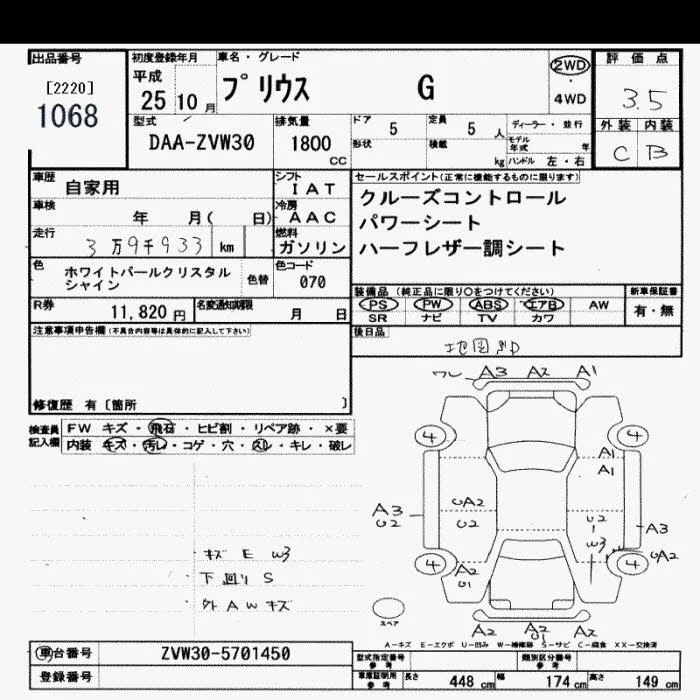 出品番号
[2220]
1068
初度登録年月
平成
25 10 月
車名・グレード
プリウス G
2WD
・
4WD
評価点
3.5
外装 内装
C B
型式
DAA-ZVW30
排気量
1800
CC
ドア 5
形状
定員 5 人
積載 kg
ディーラー・並行
モデル年式 年
ハンドル 左・右
車歴 自家用
シフト
IAT
車検 年 月( 日)
冷房
AAC
走行 3万9千933 km
燃料
ガソリン
セールスポイント(正常に機能するものに限ります)
クルーズコントロール
パワーシート
ハーフレザー調シート
色 ホワイトパールクリスタル
シャイン
色替
色コード
070
装備品(純正品に限り○をつけてください)
PS PW ABS エアB AW
SR ナビ TV カワ
新車保証書
有・無
R券 11,820 円
名変通知期限 月 日
後日品
地図SD
注意事項申告欄(不具合内容等は具体的に記入して下さい)
修復歴 有 [箇所 ]
検査員
記入欄
FW キズ・飛石・ヒビ割・リペア跡・×要
内装 キズ・汚れ・コゲ・穴・スレ・キレ・破レ
A3 A2 A1
4 4
A1
A1
A3
U2
UA2
U2
U2
A3
W3
UA2
4 4
A2
U1
キズ E W3
下廻り S
外 AW キズ
スペア
A2 A2 A2
S1
A-キズ E-エクボ U-凹み W-補修跡 S-サビ C-腐食 XX-交換済
車台番号 ZVW30-5701450
登録番号
型式指定番号
参考
類別区分番号
参考
車庫証明用
参考
長さ 448 cm 幅 174 cm 高さ 149 cm